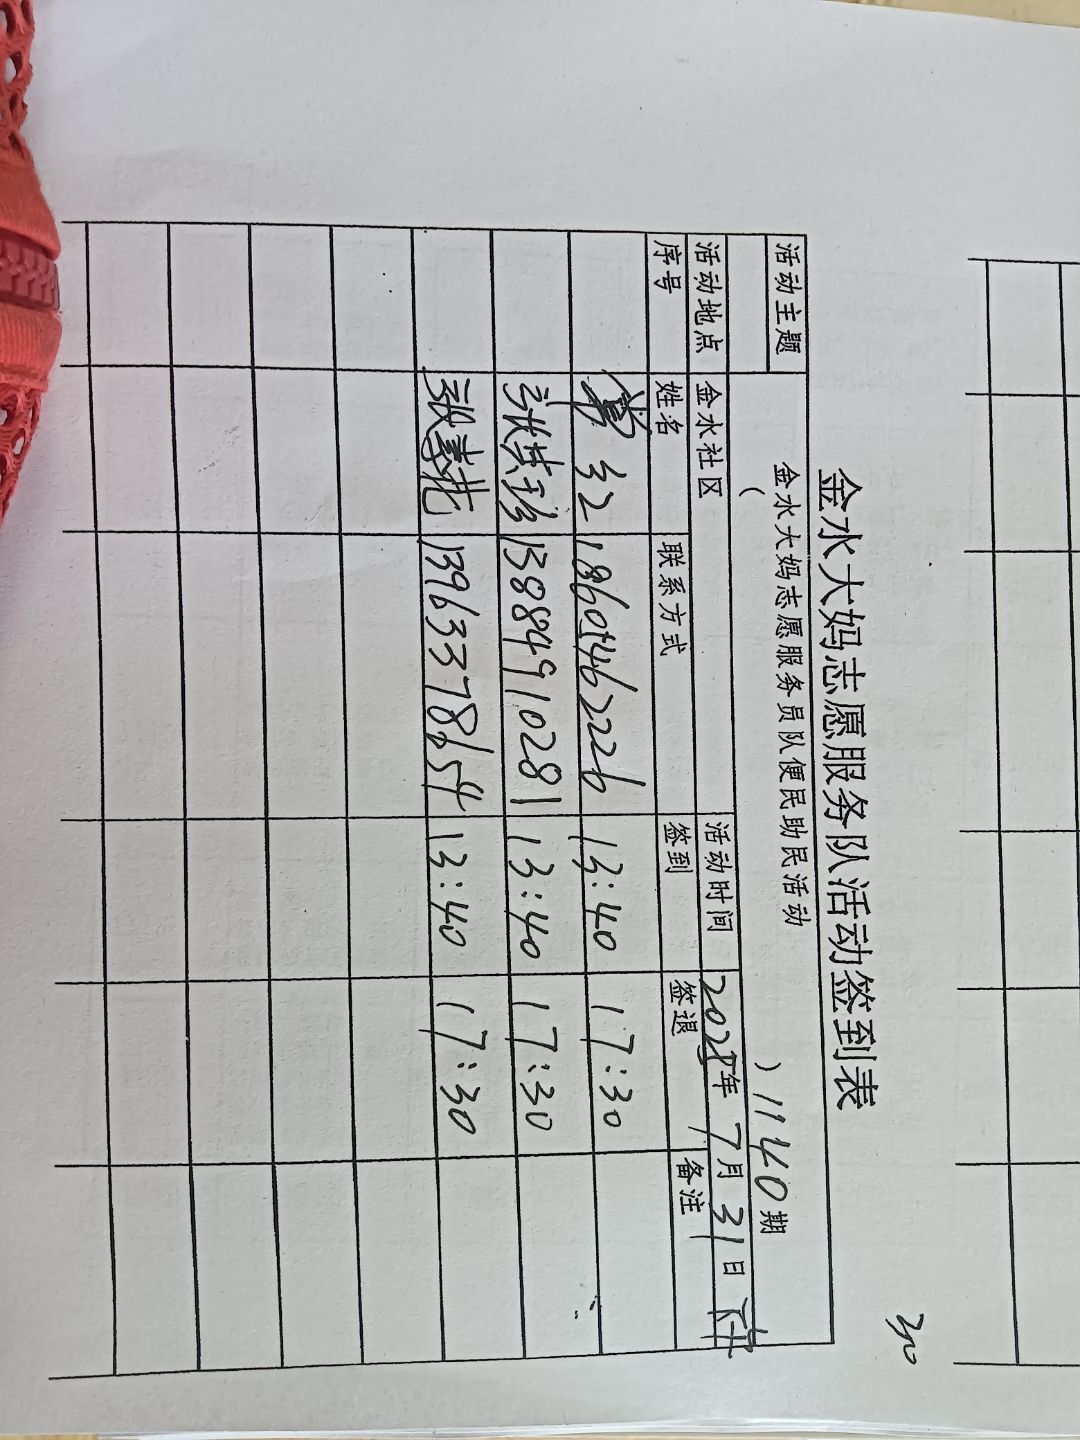 30
金水大妈志愿服务队活动签到表
活动主题 金水大妈志愿服务员队便民助民活动
( ) 1140期
活动地点 金水社区 活动时间 年7月31日
序号 姓名 联系方式 签到 签退 备注
18605462226 13:40 17:30
13884910281 13:40 17:30
13963378654 13:40 17:30